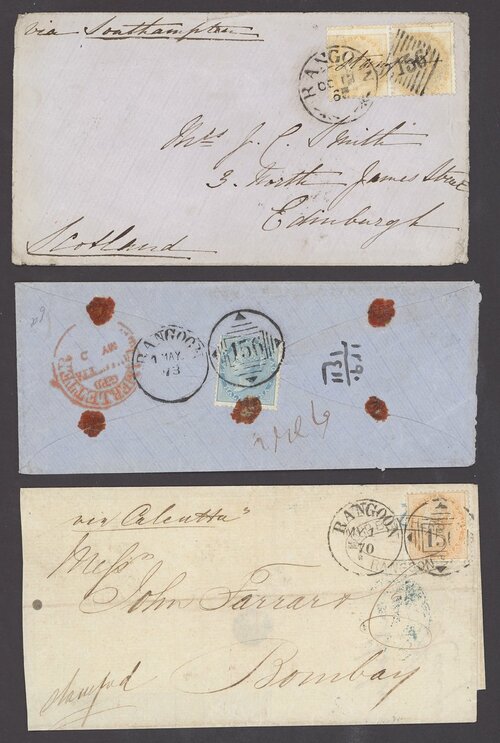 via Southampton
RANGOON
156
Mrs J. C. Smith
3. North James Street
Edinburgh
Scotland
RANGOON
1 MAY
73
156
GPO
MY
via Calcutta"
RANGOON
70
156
Messrs
John Farrar & Co
Bombay